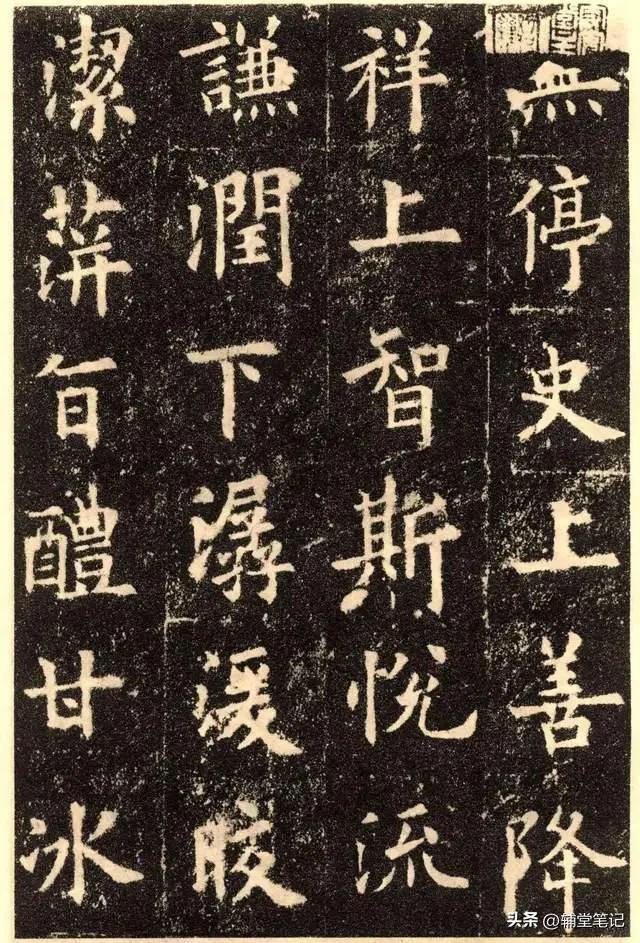 無停史上善降
祥上智斯悅流
謙潤下潺湲皎
潔蓱旨醴甘冰
头条 @辅堂笔记